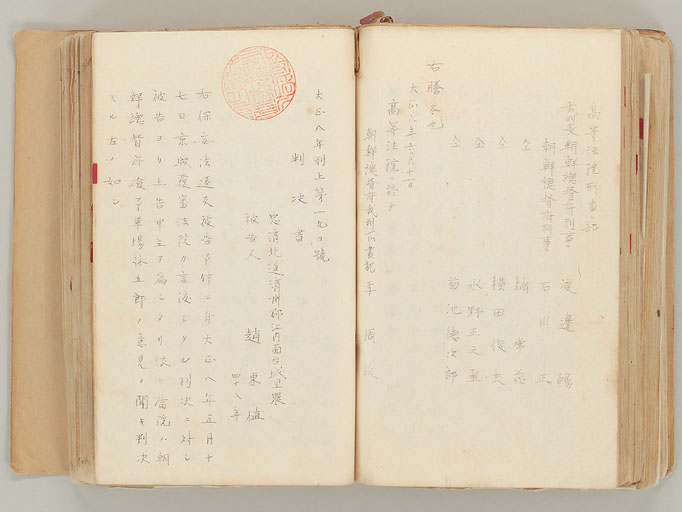 高等法院刑事部
裁判長朝鮮總督府判事 渡邊暢
朝鮮總督府判事 石川正
仝
仝 橫田俊夫
仝 水野正之丞
仝 菊池德次郎
右謄本也
大正八年六月十二日
高等法院ニ於テ
朝鮮總督府裁判所書記 李周
大正八年刑上第一九〇號
判決書
忠淸北道淸州郡江內面台城里農
被告人 趙東植
四十八年
右保安法違反被告事件ニ付大正八年五月十
七日京城覆審法院カ言渡シタル判決ニ對シ
被告ヨリ上告申立ヲ爲シタリ依テ當院ハ朝
鮮總督府檢事草場林五郎ノ意見ヲ聞キ判決
スル左ノ如シ